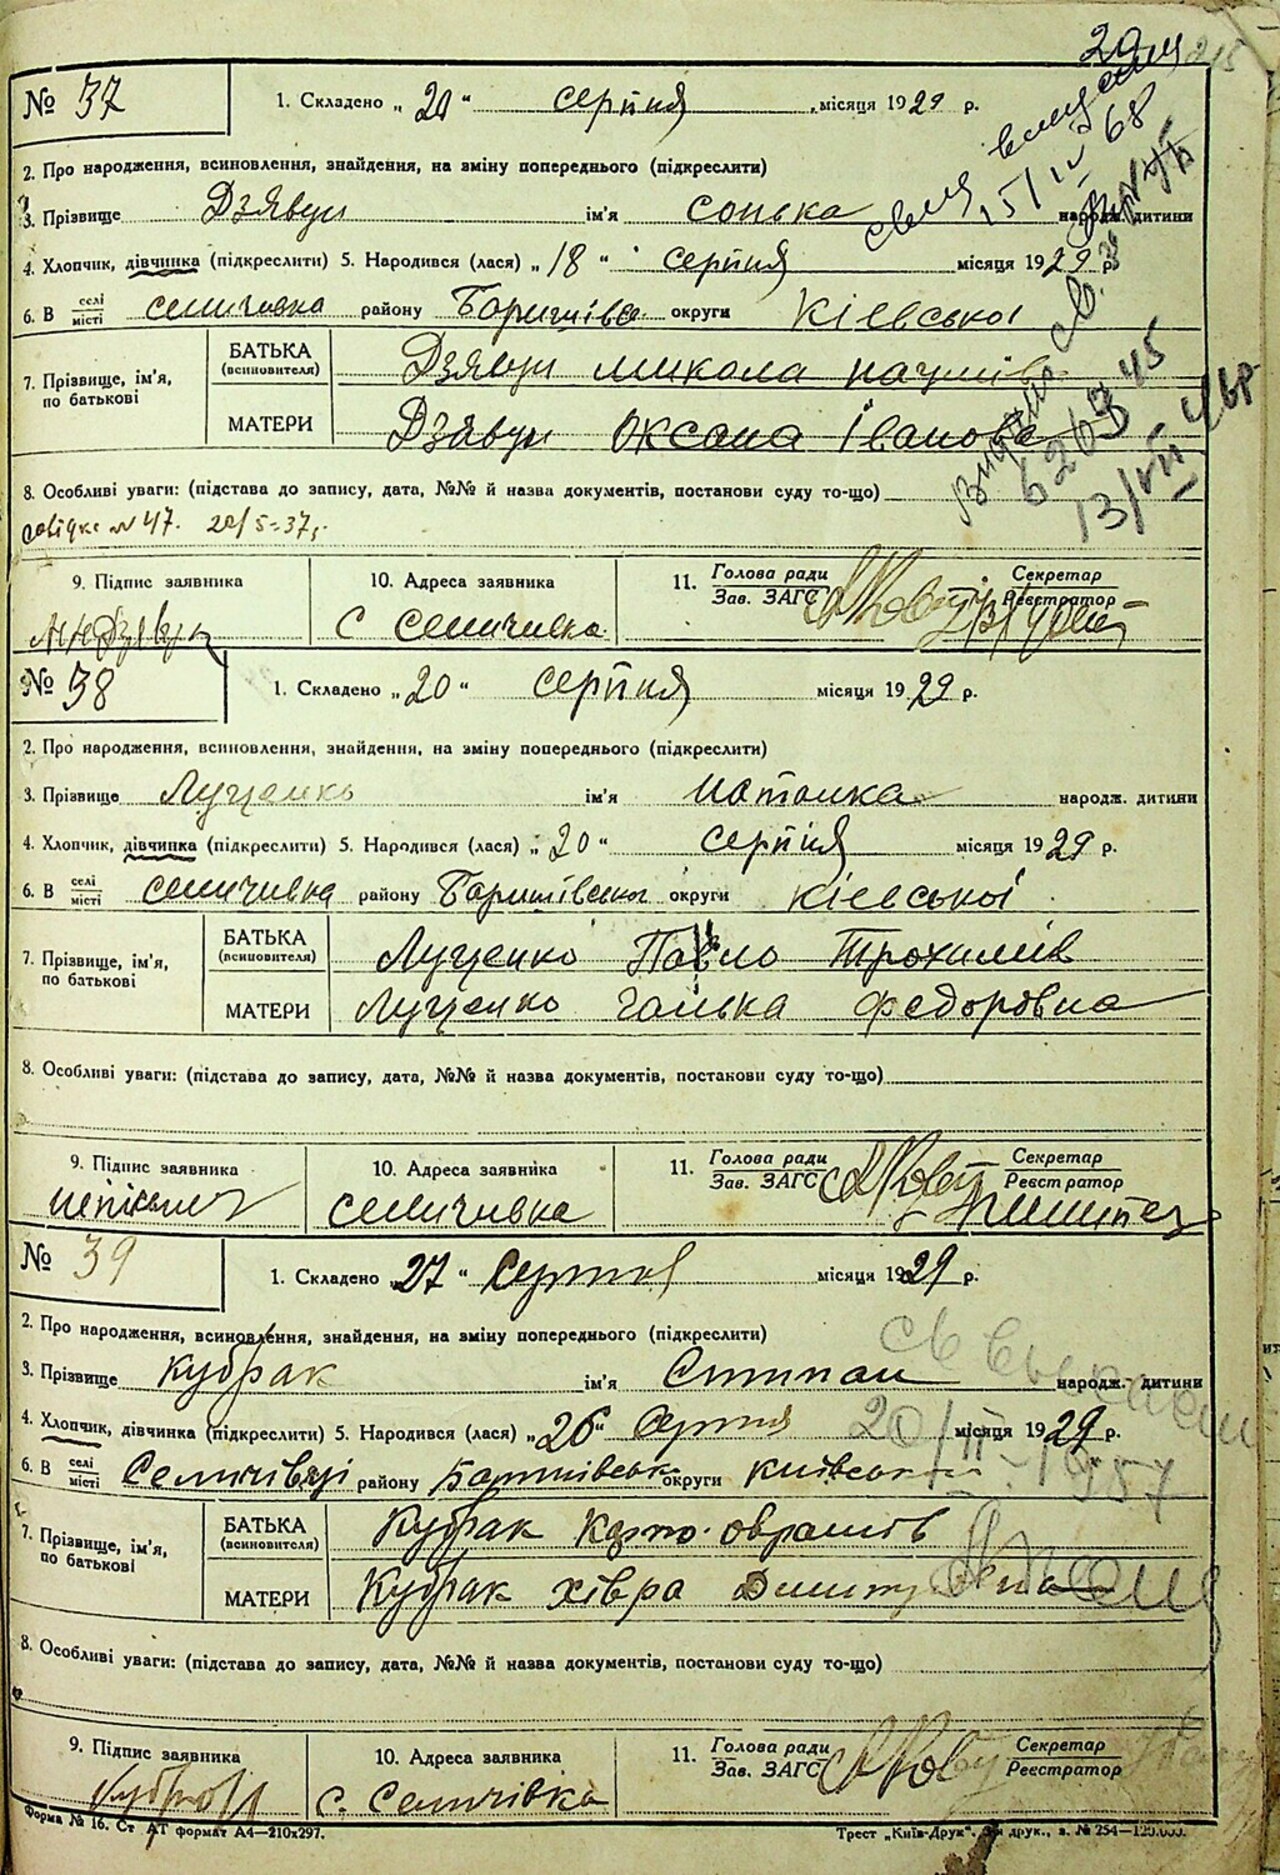 20
215
№ 37
1. Складено „20“ серпня місяця 1929 р.
2. Про народження, всиновлення, знайдення, на зміну попереднього (підкреслити)
3. Прізвище Дзявун ім'я сонька народж. дитини
4. Хлопчик, дівчинка (підкреслити) 5. Народився (лася) „18“ серпня місяця 1929 р.
6. В селі місті семичивка району Баришівс. округи Кіевської
7. Прізвище, ім'я, по батькові
БАТЬКА (всиновителя) Дзявун микола наумів
МАТЕРИ Дзявун Оксана Іванова
8. Особливі уваги: (підстава до запису, дата, №№ й назва документів, постанови суду то-що)
№ 47. 20/5-37
15/IV 68
620345
13/VII
9. Підпис заявника
10. Адреса заявника с семичивка
11. Голова ради Зав. ЗАГС Секретар Реєстратор
№ 38
1. Складено „20“ серпня місяця 1929 р.
2. Про народження, всиновлення, знайдення, на зміну попереднього (підкреслити)
3. Прізвище Луценко ім'я наталка народж. дитини
4. Хлопчик, дівчинка (підкреслити) 5. Народився (лася) „20“ серпня місяця 1929 р.
6. В селі місті семичивка району Баришівської округи Кіевської
7. Прізвище, ім'я, по батькові
БАТЬКА (всиновителя) Луценко Павло Трохимів
МАТЕРИ Луценко галька Федоровна
8. Особливі уваги: (підстава до запису, дата, №№ й назва документів, постанови суду то-що)
9. Підпис заявника
10. Адреса заявника семичивка
11. Голова ради Зав. ЗАГС Секретар Реєстратор
№ 39
1. Складено „27“ Серпня місяця 1929 р.
2. Про народження, всиновлення, знайдення, на зміну попереднього (підкреслити)
3. Прізвище Кубрак ім'я Степан народж. дитини
4. Хлопчик, дівчинка (підкреслити) 5. Народився (лася) „26“ Серпня місяця 1929 р.
20/II-1957
6. В селі місті Семичівці району Баришівськ округи Київськ
7. Прізвище, ім'я, по батькові
БАТЬКА (всиновителя) Кубрак
МАТЕРИ Кубрак хівра
8. Особливі уваги: (підстава до запису, дата, №№ й назва документів, постанови суду то-що)
9. Підпис заявника
10. Адреса заявника с. Семичівка
11. Голова ради Зав. ЗАГС Секретар Реєстратор
Форма № 16. Ст АТ формат А4—210x297.
Трест „Київ-Друк“. друк., з. № 254—120.000.